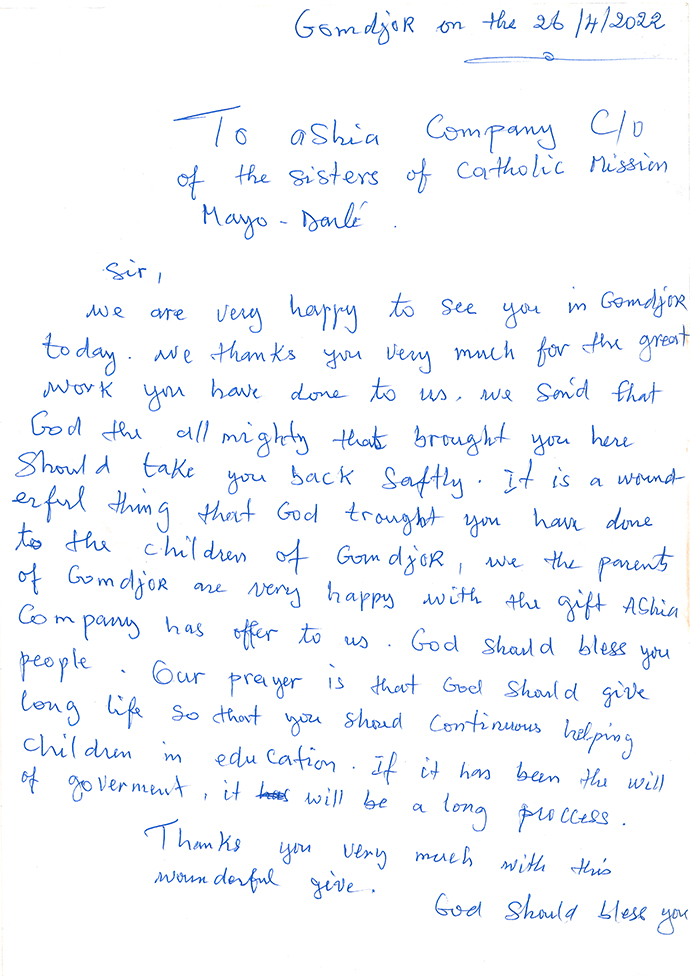 Gomdjor on the 26/4/2022
To aShia Company C/o
of the sisters of Catholic Mission
Mayo - Darlé.
Sir,
we are very happy to see you in Gomdjor
today. we thanks you very much for the great
work you have done to us. we send that
God the all mighty that brought you here
Should take you back Saftly. It is a wound-
erful thing that God trought you have done
to the children of Gomdjor, we the parents
of Gomdjor are very happy with the gift AShia
Company has offer to us. God should bless you
people. Our prayer is that God Should give
long life so that you shoud Continuous helping
Children in education. If it has been the will
of goverment, it will be a long proccess.
Thanks you very much with this
wounderful give.
God Should bless you